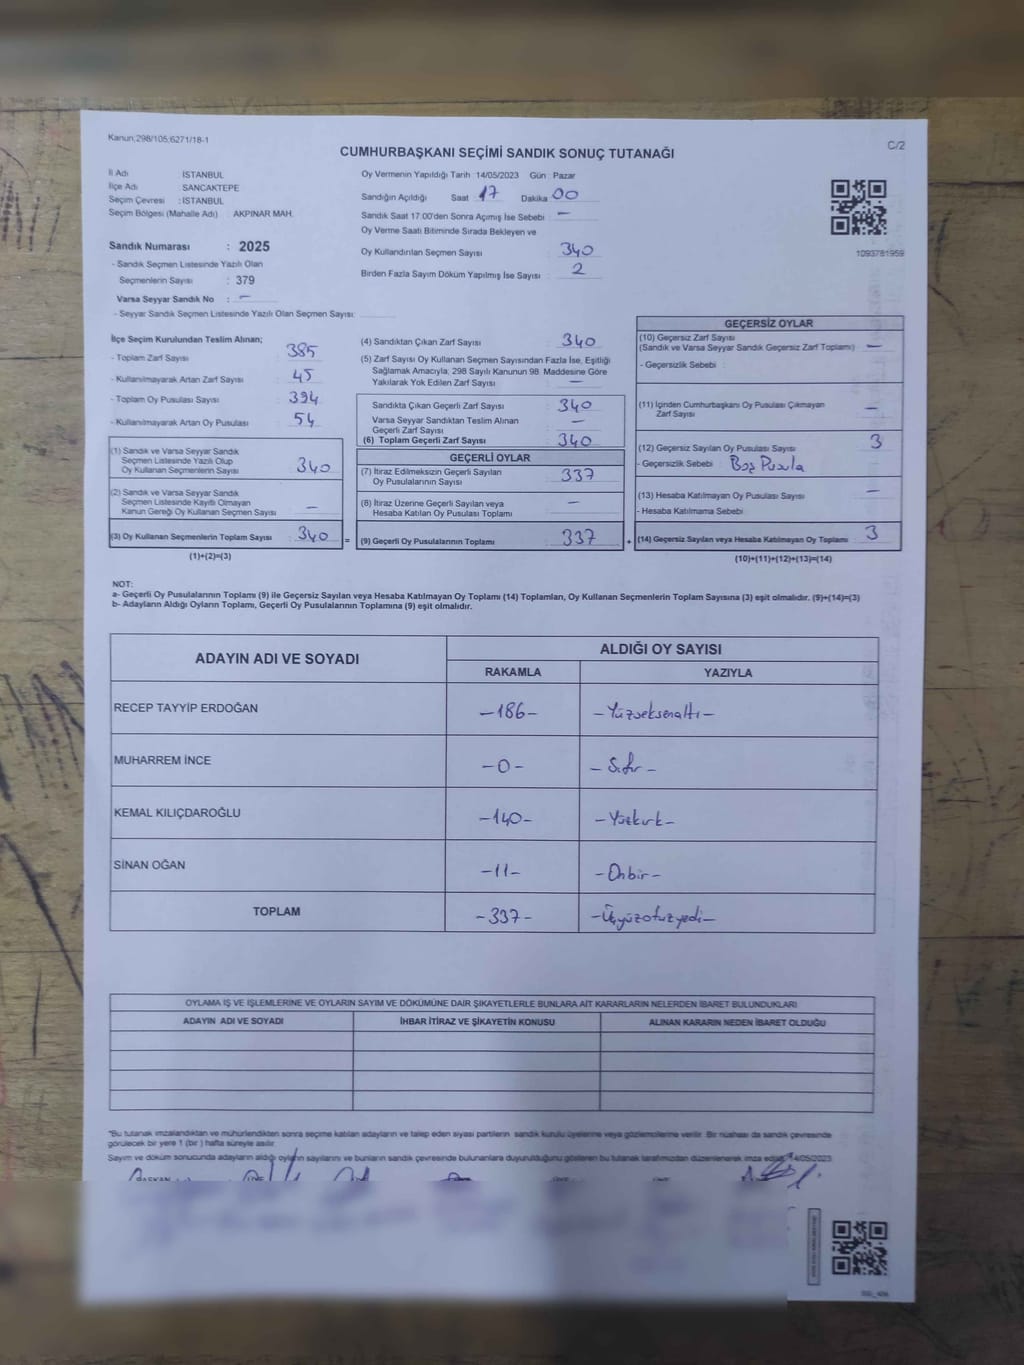 Kanun;298/105;6271/18-1
C/2
CUMHURBAŞKANI SEÇİMİ SANDIK SONUÇ TUTANAĞI
İl Adı : İSTANBUL
İlçe Adı : SANCAKTEPE
Seçim Çevresi : İSTANBUL
Seçim Bölgesi (Mahalle Adı) : AKPINAR MAH.
Sandık Numarası : 2025
- Sandık Seçmen Listesinde Yazılı Olan
Seçmenlerin Sayısı : 379
Varsa Seyyar Sandık No : -
- Seyyar Sandık Seçmen Listesinde Yazılı Olan Seçmen Sayısı:
Oy Vermenin Yapıldığı Tarih 14/05/2023 Gün : Pazar
Sandığın Açıldığı Saat 17 Dakika 00
Sandık Saat 17.00'den Sonra Açımış İse Sebebi : -
Oy Verme Saati Bitiminde Sırada Bekleyen ve
Oy Kullandırılan Seçmen Sayısı 340
Birden Fazla Sayım Döküm Yapılmış İse Sayısı : 2
1093781959
İlçe Seçim Kurulundan Teslim Alınan;
- Toplam Zarf Sayısı 385
- Kullanılmayarak Artan Zarf Sayısı : 45
- Toplam Oy Pusulası Sayısı : 394
- Kullanılmayarak Artan Oy Pusulası : 54
(1) Sandık ve Varsa Seyyar Sandık
Seçmen Listesinde Yazılı Olup
Oy Kullanan Seçmenlerin Sayısı : 340
(2) Sandık ve Varsa Seyyar Sandık
Seçmen Listesinde Kayıtlı Olmayan
Kanun Gereği Oy Kullanan Seçmen Sayısı : -
(3) Oy Kullanan Seçmenlerin Toplam Sayısı : 340 =
(1)+(2)=(3)
(4) Sandıktan Çıkan Zarf Sayısı : 340
(5) Zarf Sayısı Oy Kullanan Seçmen Sayısından Fazla İse, Eşitliği
Sağlamak Amacıyla; 298 Sayılı Kanunun 98. Maddesine Göre
Yakılarak Yok Edilen Zarf Sayısı : -
Sandıkta Çıkan Geçerli Zarf Sayısı : 340
Varsa Seyyar Sandıktan Teslim Alınan
Geçerli Zarf Sayısı : -
(6) Toplam Geçerli Zarf Sayısı : 340
GEÇERLİ OYLAR
(7) İtiraz Edilmeksizin Geçerli Sayılan
Oy Pusulalarının Sayısı : 337
(8) İtiraz Üzerine Geçerli Sayılan veya
Hesaba Katılan Oy Pusulası Toplamı : -
(9) Geçerli Oy Pusulalarının Toplamı : 337 +
GEÇERSİZ OYLAR
(10) Geçersiz Zarf Sayısı
(Sandık ve Varsa Seyyar Sandık Geçersiz Zarf Toplamı) : -
- Geçersizlik Sebebi :
(11) İçinden Cumhurbaşkanı Oy Pusulası Çıkmayan
Zarf Sayısı : -
(12) Geçersiz Sayılan Oy Pusulası Sayısı : 3
- Geçersizlik Sebebi : Boş Pusula
(13) Hesaba Katılmayan Oy Pusulası Sayısı : -
- Hesaba Katılmama Sebebi :
(14) Geçersiz Sayılan veya Hesaba Katılmayan Oy Toplamı : 3
(10)+(11)+(12)+(13)=(14)
NOT:
a- Geçerli Oy Pusulalarının Toplamı (9) ile Geçersiz Sayılan veya Hesaba Katılmayan Oy Toplamı (14) Toplamları, Oy Kullanan Seçmenlerin Toplam Sayısına (3) eşit olmalıdır. (9)+(14)=(3)
b- Adayların Aldığı Oyların Toplamı, Geçerli Oy Pusulalarının Toplamına (9) eşit olmalıdır.
ADAYIN ADI VE SOYADI
ALDIĞI OY SAYISI
RAKAMLA YAZIYLA
RECEP TAYYİP ERDOĞAN -186- -Yüzseksenaltı-
MUHARREM İNCE -0- -Sıfır-
KEMAL KILIÇDAROĞLU -140- -Yüzkırk-
SİNAN OĞAN -11- -Onbir-
TOPLAM -337- -Üçyüzotuzyedi-
OYLAMA İŞ VE İŞLEMLERİNE VE OYLARIN SAYIM VE DÖKÜMÜNE DAİR ŞİKAYETLERLE BUNLARA AİT KARARLARIN NELERDEN İBARET BULUNDUKLARI
ADAYIN ADI VE SOYADI İHBAR İTİRAZ VE ŞİKAYETİN KONUSU ALINAN KARARIN NEDEN İBARET OLDUĞU
*Bu tutanak imzalandıktan ve mühürlendikten sonra seçime katılan adayların ve talep eden siyasi partilerin sandık kurulu üyelerine veya gözlemcilerine verilir. Bir nüshası da sandık çevresinde
görülecek bir yere 1 (bir ) hafta süreyle asılır.
Sayım ve döküm sonucunda adayların aldığı oyların sayılarını ve bunların sandık çevresinde bulunanlara duyurulduğunu gösteren bu tutanak tarafımızdan düzenlenerek imza edildi. 14/05/2023